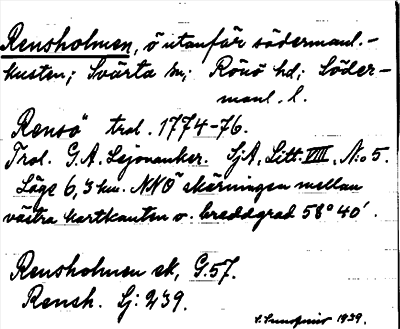 Rensholmen, ö utanför södermanl.-
kusten; Svärta sn; Rönö hd; Söder-
manl. l.
"Rensö" trol. 1774-76.
Trol. G.A. Lejonanker. SjA, Litt. VIII, N:o 5.
Läge 6,3 km. NNÖ skärningen mellan
västra kartkanten o. breddgrad 58° 40'.
Rensholmen sk, G.57.
Rensh. Sj: 239.
1939.